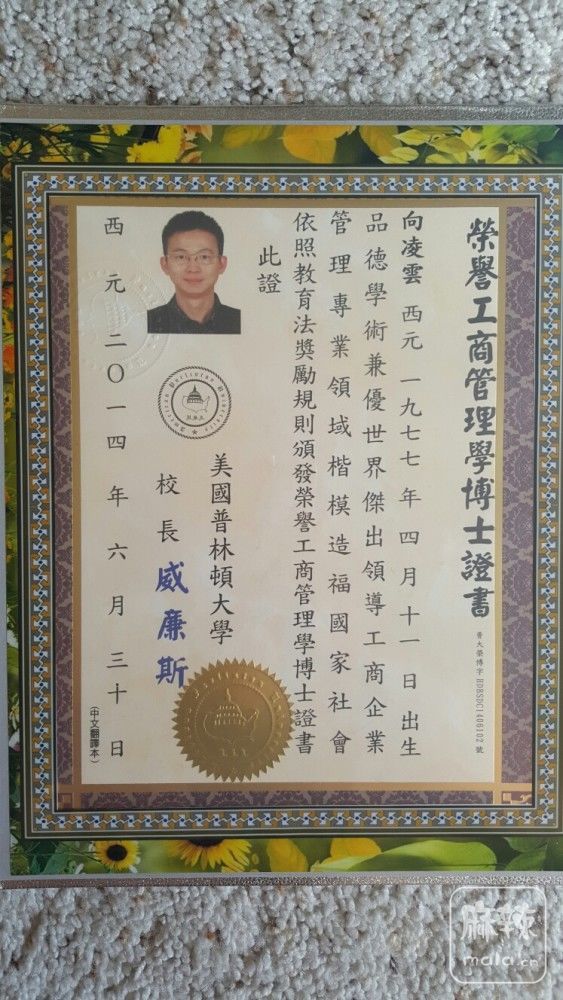 榮譽工商管理學博士證書
普大榮博字HDBSDC1406102號
向凌雲 西元一九七七年四月十一日出生
品德學術兼優世界傑出領導工商企業
管理專業領域楷模造福國家社會
依照教育法獎勵規則頒發榮譽工商管理學博士證書
此證
美國普林頓大學
校長 威廉斯
西元二〇一四年六月三十日
(中文翻譯本)
麻辣
mala.cn